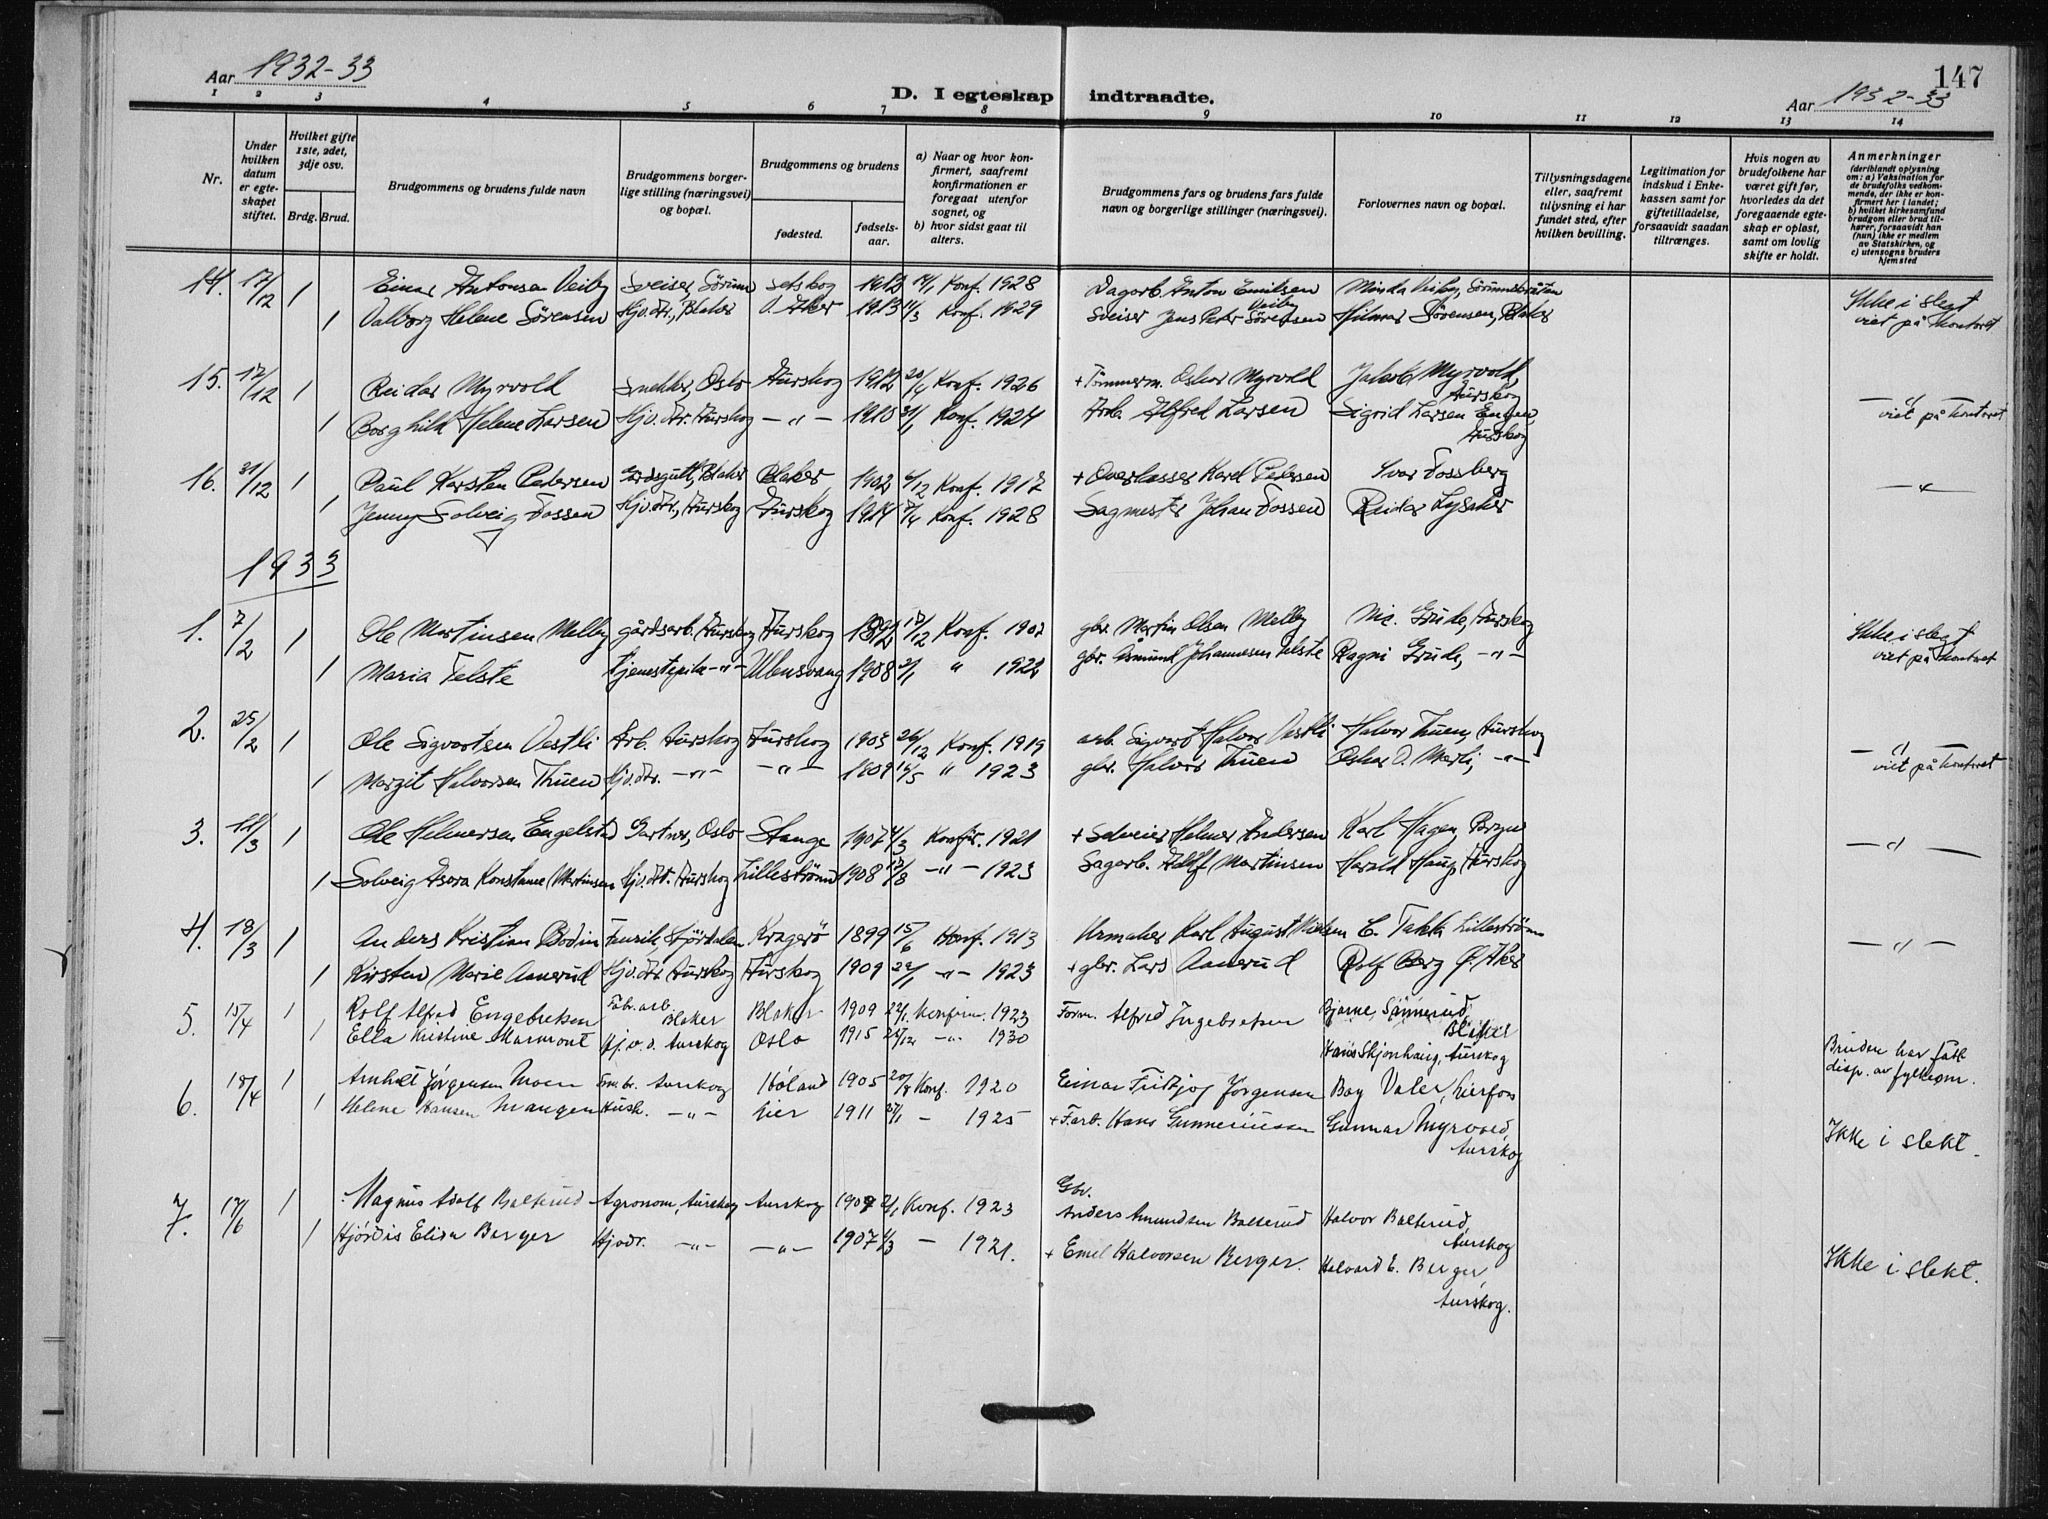 147
Aar 1932-33
D. I egteskap indtraadte.
Aar 1932-33
1 2 3 4 5 6 7 8 9 10 11 12 13 14
Nr.
Under hvilken datum er egteskapet stiftet.
Hvilket gifte 1ste, 2det, 3dje osv.
Brdg. Brud.
Brudgommens og brudens fulde navn
Brudgommens borgerlige stilling (næringsvei) og bopæl.
Brudgommens og brudens
fødested.
fødselsaar.
a) Naar og hvor konfirmert, saafremt konfirmationen er foregaat utenfor sognet, og
b) hvor sidst gaat til alters.
Brudgommens fars og brudens fars fulde navn og borgerlige stillinger (næringsvei).
Forlovernes navn og bopæl.
Tillysningsdagene eller, saafremt tillysning ei har fundet sted, efter hvilken bevilling.
Legitimation for indskud i Enkekassen samt for giftetilladelse, forsaavidt saadan tiltrænges.
Hvis nogen av brudefolkene har været gift før, hvorledes da det foregaaende egteskap er opløst, samt om lovlig skifte er holdt.
Anmerkninger (deriblandt oplysning om: a) Vaksination for de brudefolks vedkommende, der ikke er konfirmert her i landet; b) hvilket kirkesamfund brudgom eller brud tilhører, forsaavidt han (hun) ikke er medlem av Statskirken, og c) utensogns bruders hjemsted
14. 17/12 1 Einar Antonsen Veiby Sveiser, Sørum Setskog 1913 Konf. 1928 Dagarb. Anton Emilsen Veiby Minda Veiby, Sørumsbråten
1 Valborg Helene Sørensen Hj.v.dr., Blaker V. Aker 1913 Konf. 1929 Sveiser Jens Peter Sørensen Hilmar Sørensen, Blaker
Ikke i slegt
viet på kontoret
15. 17/12 1 Reidar Myrvold Snekker, Oslo Aurskog 1912 Konf. 1926 + Tømmerm. Oskar Myrvold Jakob Myrvold, Aurskog
1 Borghild Helene Larsen Hj.v.dr. Aurskog —„— 1910 Konf. 1924 Arb. Alfred Larsen Sigrid Larsen Engen, Aurskog
—„—
viet på kontoret
16. 31/12 1 Paul Karsten Pedersen Gårdsgutt, Blaker Blaker 1902 Konf. 1917 + Overlasser Karl Pedersen Ivar Fossberg
1 Jenny Solveig Fossen Hj.v.dr., Aurskog Aurskog 1914 Konf. 1928 Sagmester Johan Fossen Reidar Lysaker
—„—
1933
1. 7/2 1 Ole Martinsen Melby gårdsarb. Aurskog Aurskog 1892 17/12 Konf. 1907 gbr. Martin Olsen Melby Nic. Grude, Aurskog
1 Maria Telste tjenestepike —„— Ullensvang 1908 2/1 „ 1922 gbr. Åsmund Johannesen Telste Ragni Grude, —„—
Ikke i slegt
viet på kontoret
2. 25/2 1 Ole Sigvartsen Vestli Arb. Aurskog Aurskog 1903 26/12 Konf. 1919 arb. Sigvart Halvor Vestli Halvor Thuen, Aurskog
1 Margit Halvorsen Thuen Hj.v.dr. —„— —„— 1909 16/5 „ 1923 gbr. Halvor Thuen Oskar O. Mærli, —„—
—„—
viet på kontoret
3. 11/3 1 Ole Helmersen Engelstad Gartner, Oslo Stange 1907 4/3 Konfir. 1921 + Helmer Andersen Karl Hagen, Bryn
1 Solveig Asora Konstanse Martinsen Hj.v.dr. Aurskog Lillestrøm 1908 12/8 —„— 1923 Sagarb. Adolf Martinsen Harald Haug, Aurskog
—„—
4. 18/3 1 Anders Kristian Bodin Fenrik Stjørdalen Kragerö 1899 15/6 Konf. 1913 Urmaker Karl August Nielsen E. Takk Lillestrøm
1 Kirsten Marie Aanerud Hj.v.dr. Aurskog Aurskog 1909 —„— 1923 + gbr. Lars Aanerud Rolf Berg Ø. Aker
—„—
5. 15/4 1 Rolf Alfred Engebretsen Fabr. arb. Blaker Blaker 1909 22/1 Konfirm. 1923 Form. Alfred Ingebretsen Bjarne Sønnerud, Blaker
1 Ella Kristine Marmont Hj.v.d. Aurskog Oslo 1915 21/12 —„— 1930 Hans Skjønhaug, Aurskog
Bruden har fått
disp. av fylkesm.
6. 18/4 1 Arnholt Jørgensen Moen Aurskog Höland 1905 20/8 Konf. 1920 Einar Fritjof Jørgensen Boy Valer, Lierfoss
1 Helene Hansen Mangen Hush. —„— Lier 1911 27/1 — 1925 + F.arb. Hans Gunneriussen Gunnar Myrvold, Aurskog
Ikke i slekt.
7. 17/6 1 Magnus Adolf Balterud Agronom, Aurskog Aurskog 1909 2/1 Konf. 1923 Gbr. Anders Amundsen Balterud Halvor Balterud, Aurskog
1 Hjørdis Elisa Berger Hjvdr. —„— —„— 1907 6/3 — 1921. + Emil Halvorsen Berger. Halvard E. Berger, Aurskog.
Ikke i slekt.